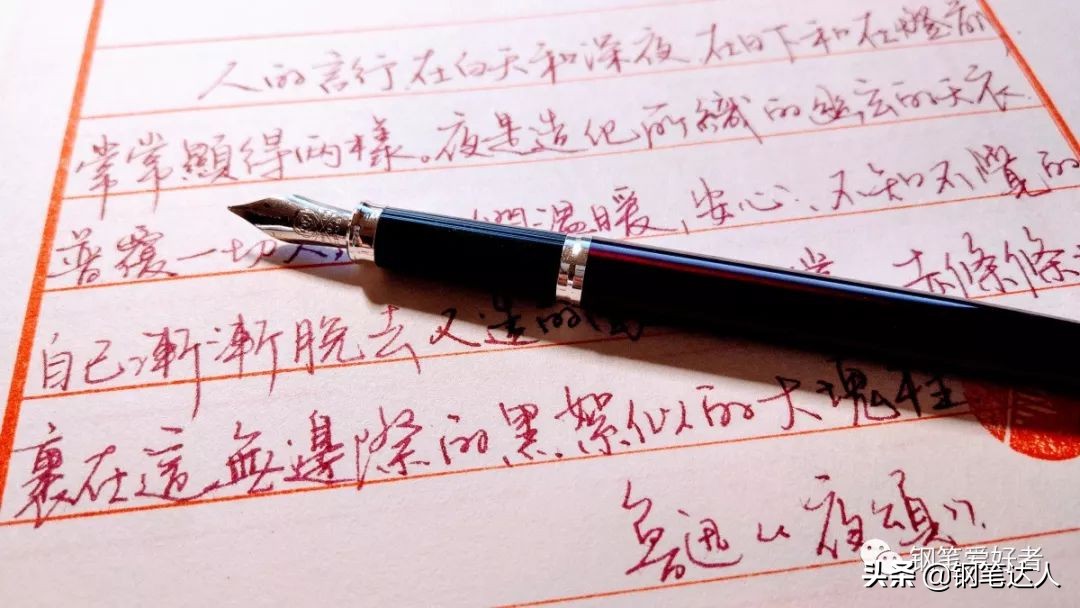 人的言行在白天和深夜,在日下和在燈前,
常常顯得兩樣。夜是造化所織的幽玄的天衣
普覆一切人,們溫暖,安心,不知不覺的
自己漸漸脫去人造的赤條條
裹在這無邊際的黑絮似的大塊裡
魯迅《夜頌》
钢笔爱好者
头条 @钢笔达人